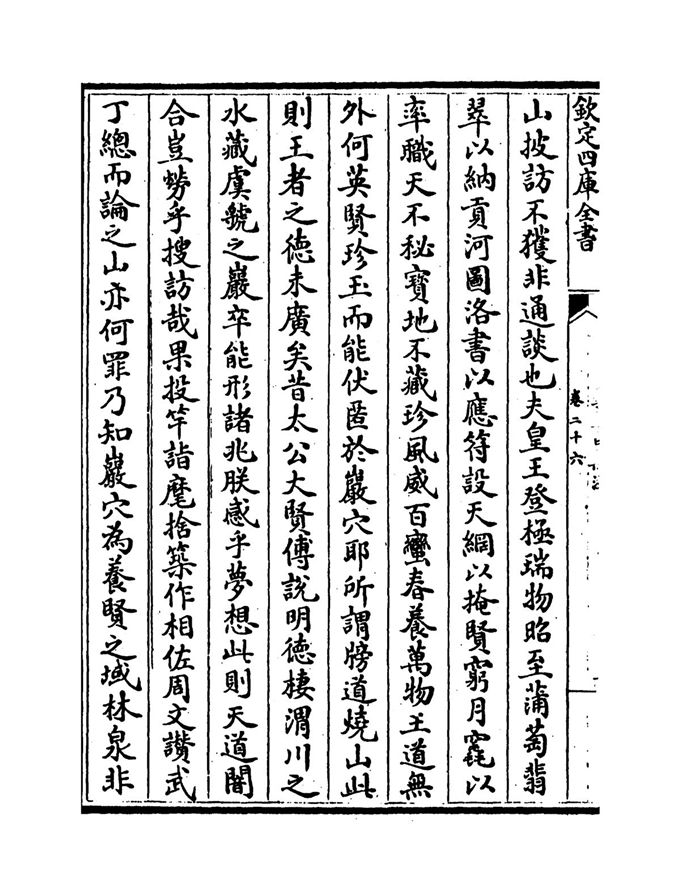 欽定四庫全書
卷二十六
山披訪不獲非通談也夫皇王登極瑞物昭至蒲萄翡
翠以納貢河圖洛書以應符設天網以掩賢窮月窟以
率職天不秘寳地不藏珍風威百蠻春養萬物王道無
外何英賢珍玉而能伏匿於巖穴耶所謂牓道燒山此
則王者之德未廣矣昔太公大賢傅說明德棲渭川之
水藏虞虢之巖卒能形諸兆朕感乎夢想此則天道闇
合豈勞乎搜訪哉果投竿詣麾捨築作相佐周文讚武
丁總而論之山亦何罪乃知巖穴為養賢之域林泉非